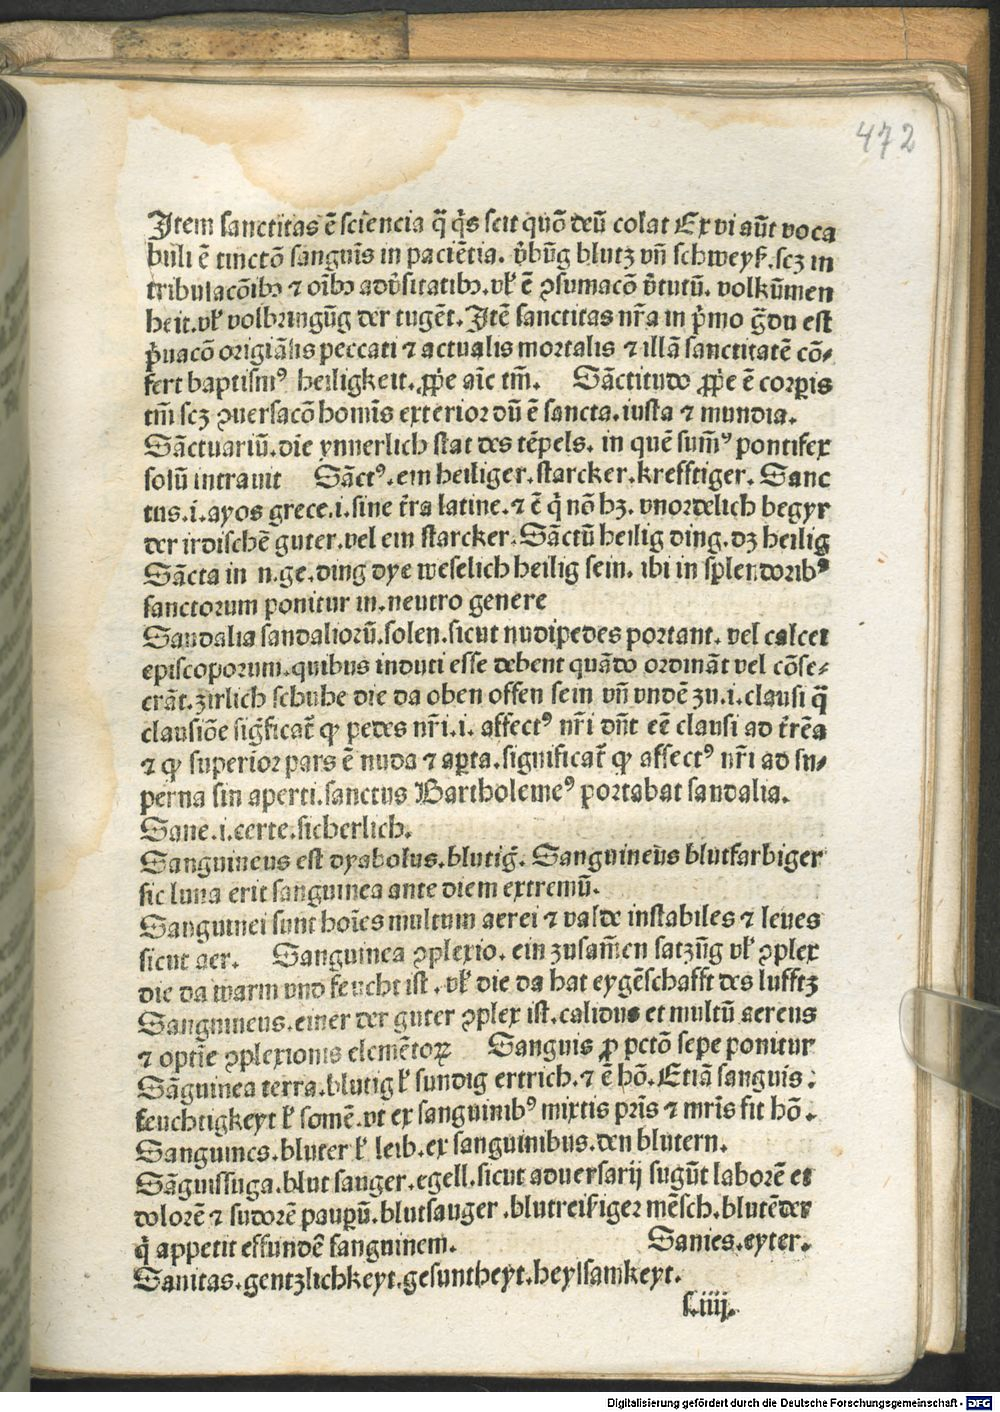 472
Item sanctitas ē sciencia q̄ q̇s scit quō deū colat Ex vi aūt voca
buli ē tinctō sanguīs in paciētia. v̓būg blutz vn̄ schweyß. scz in
tribulacōibꝰ ⁊ oībꝰ adv̓sitatibꝰ. vl̓ ē ꝯsumacō v̓tutū. volkūmen
heit. vl̓ volbringūg der tugēt. Itē sanctitas nr̄a in p̓mo g̓du est
p̓uacō origiālis peccati ⁊ actualis mortalis ⁊ illā sanctitatē cō⸗
fert baptismꝰ heiligkeit. ꝓpͤ aīe tm̄. Sāctitudo ꝓpͤ ē corꝑis
tm̄ scz ꝯuersacō homīs exterior dū ē sancta. iusta ⁊ mundia.
Sāctuariū. dīe ynnerlich stat des tēpels. in quē sum̄ꝰ pontifex
solū intrauit Sāctꝰ. ein heiliger. starcker. krefftiger. Sanc
tus. i. ayos grece. i. sine t̄ra latine. ⁊ ē q̇ nō hꝫ. vnordelich begyr
der irdischē guter. vel ein starcker. Sāctū heilig ding. dꝫ heilig
Sācta in n. ge. ding dye weselich heilig sein. ibi in splendoribꝰ
sanctorum ponitur in. neutro genere
Sandalia sandaliorū. solen. sicut nudipedes portant. vel calcei
episcoporum. quibus induti esse debent quādo ordināt vel cōse⸗
crāt. zirlich schuhe die da oben offen sein vn̄ vndē zu. i. clausi q̄
clausiōe sig̓ficat̄ ꝙ pedes nr̄i. i. affectꝰ nr̄i dn̄t eē clausi ad t̄rēa
⁊ ꝙ superior pars ē nuda ⁊ aꝑta. significat̄ ꝙ affectꝰ nr̄i ad su⸗
perna sin aperti. sanctus Bartholemeꝰ portabat sandalia.
Sane. i. certe. sicherlich.
Sanguineus est dyabolus. blutig̓. Sanguineūs blutfarbiger
sic luna erit sanguinea ante diem extremū.
Sanguinei sunt hoīes multum aerei ⁊ valde instabiles ⁊ leues
sicut aer. Sanguinea ꝯplexio. ein zusam̄en satzūg vl̓ ꝯplex
die da warm vnd feucht ist. vl̓ die da hat eygēschafft des lufftz
Sanguineus. einer der guter ꝯplex ist. calidus et multū aereus
⁊ optīe ꝯplexionis elemētoꝝ Sanguis ꝓ pctō sepe ponitur
Sāguinea terra. blutig l̓ sundig ertrich. ⁊ ē hō. Etiā sanguis:
feuchtigkeyt l̓ somē. vt ex sanguinibꝰ mixtis pr̄is ⁊ mr̄is fit hō.
Sanguines. bluter l̓ leib. ex sanguinibus. den blutern.
Sāguissuga. blut sauger. egell. sicut aduersarij sugūt laborē et
dolorē ⁊ sudorē pauꝑū. blutsauger. blutreisiger mēsch. blutēder
q̇ appetit effundē sanguinem. Sanies. eyter.
Sanitas. gentzlichkeyt. gesuntheyt. heylsamkeyt.
s. iiij.
Digitalisierung gefördert durch die Deutsche Forschungsgemeinschaft - DFG